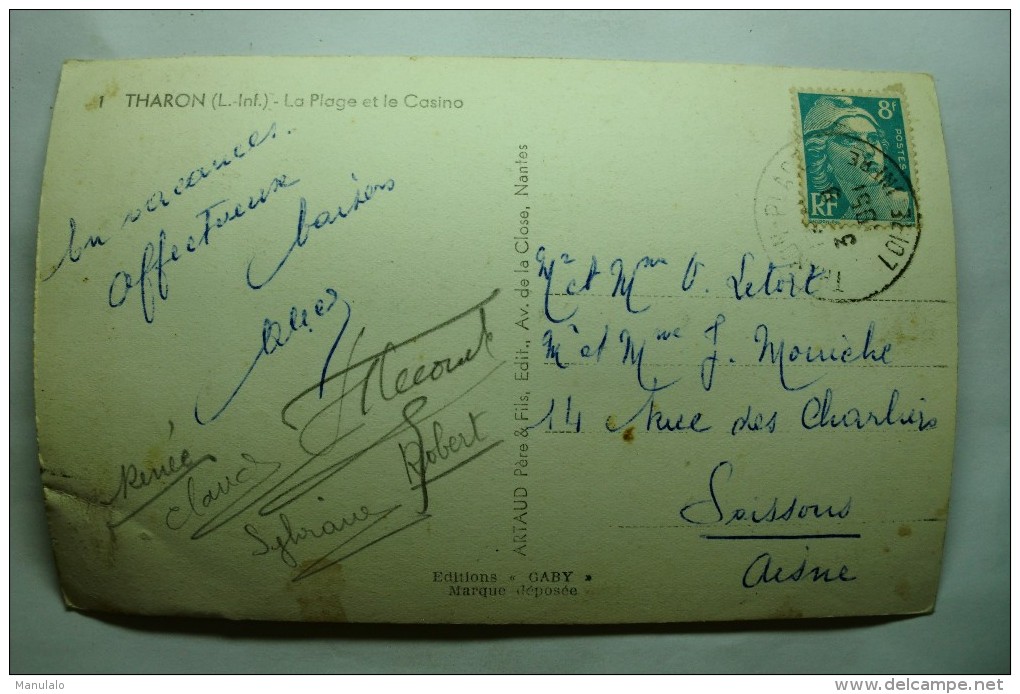 1 THARON (L.-Inf.) - La Plage et le Casino
En vacances.
affectueux
baisers
Renée
Claud
Sylviane
Robert
ARTAUD Père & Fils, Edit., Av. de la Close, Nantes
Editions « GABY »
Marque déposée
8F
POSTES
RF
Mr et Mme V. Letort
Mr et Mme J. Mouiche
14 Rue des Charliers
Soissons
Aisne
Manulalo
delcampe.net